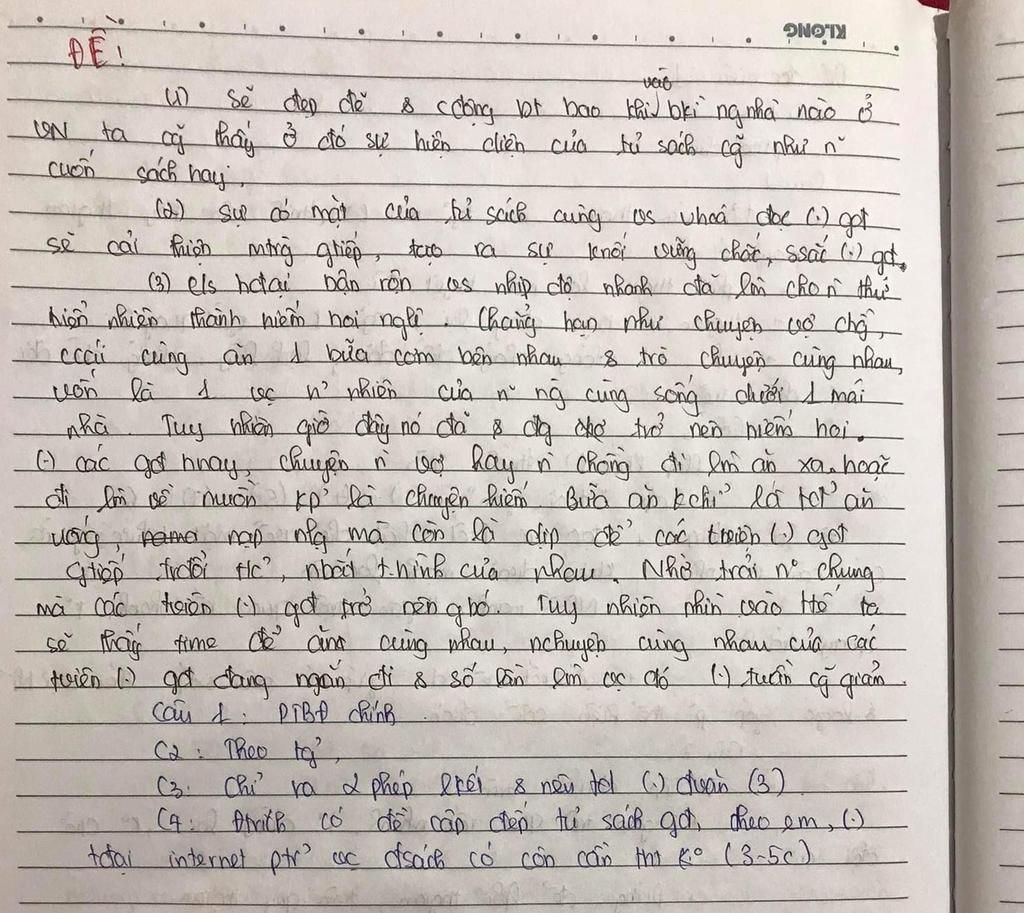 KLONG
ĐỀ!
vào
(1) Sẽ đẹp đẽ & cđộng bt bao khi bkì ng nhà nào ở
VN ta cg̃ thấy ở đó sự hiện diện của tủ sách cg̃ như n~
cuốn sách hay.
(2) Sự có mặt của tủ sách cùng vs vhoá đọc (.) gđ
sẽ cải thiện mtrg gtiếp, tạo ra sự knối vững chắc, ssắc (.) gđ.
(3) c/s hđại bận rộn vs nhịp độ nhanh đã lm cho n` thứ
hiển nhiên thành hiếm hoi nglệ. Chẳng hạn như chuyện vợ chồg,
ccái cùng ăn 1 bữa cơm bên nhau & trò chuyện cùng nhau,
vốn là 1 vc nhiên của n~ ng cùng sống dưới 1 mái
nhà. Tuy nhiên giờ đây nó đã & đg trở nên hiếm hoi.
(.) các gđ hnay, chuyện n` vợ hay n` chồng đi lm ăn xa, hoặc
đi lm về muộn kp? là chuyện hiếm. Bữa ăn kchỉ là ăn
uống, nạp nlg mà còn là dịp để các tviên (.) gđ
gtiếp trđổi t/c?, nbắt t.hình của nhau. Nhờ trải n° chung
mà các tviên (.) gđ trở nên gbó. Tuy nhiên nhìn vào ttế ta
sẽ thấy time để ăn cùng nhau, nchuyện cùng nhau của các
tviên (.) gđ đang ngắn đi & số lần lm vc đó (.) tuần cg̃ giảm.
Câu 1: PTBĐ chính.
C2: Theo tg?,
C3: Chỉ ra 2 phép lkết & nêu td (.) đoạn (3)
C4: Đtrích có đề cập đến tủ sách gđ, theo em, (.)
tđại internet ptr? vc đsách có còn cần tht k° (3-5c)